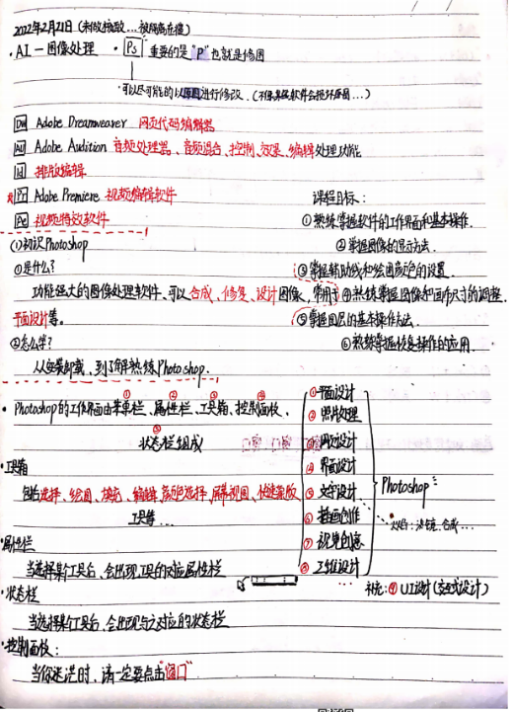 2022年2月21日
·AI — 图像处理 · Ps 重要的是"P"也就是修图
可以尽可能的以原图进行修改.
Dw Adobe Dreamweaver 网页代码编辑器
Au Adobe Audition 音频处理器、音频混合、控制、效果、编辑处理功能
Id 排版编辑
Pr Adobe Premiere 视频编辑软件
Ae 视频特效软件
课程目标:
①熟练掌握软件的工作界面和基本操作.
②掌握图像的显示方法.
③掌握辅助线和绘画颜色的设置.
④熟练掌握图像和画布尺寸的调整.
⑤掌握图层的基本操作方法.
⑥熟练掌握恢复操作的应用.
(1)初识Photoshop
①是什么?
功能强大的图像处理软件、可以合成、修复、设计图像,常用于
平面设计等。
②怎么学?
从安装卸载,到了解熟练Photoshop.
· Photoshop的工作界面由①菜单栏、②属性栏、③工具箱、④控制面板、
⑤状态栏组成
·工具箱
包括选择、绘图、填充、编辑、颜色选择、屏幕视图、快速蒙版
工具等...
·属性栏
当选择某个工具后,会出现工具的对应属性栏
·状态栏
当选择某个工具后,会出现与之对应的状态栏
·控制面板:
当你迷茫时,请一定要点击"窗口"
①平面设计
②照片处理
③网页设计
④界面设计
⑤文字设计
⑥插画创作
⑦视觉创意
⑧三维设计
Photoshop
合成...
补充:⑨UI设计(交互式设计)